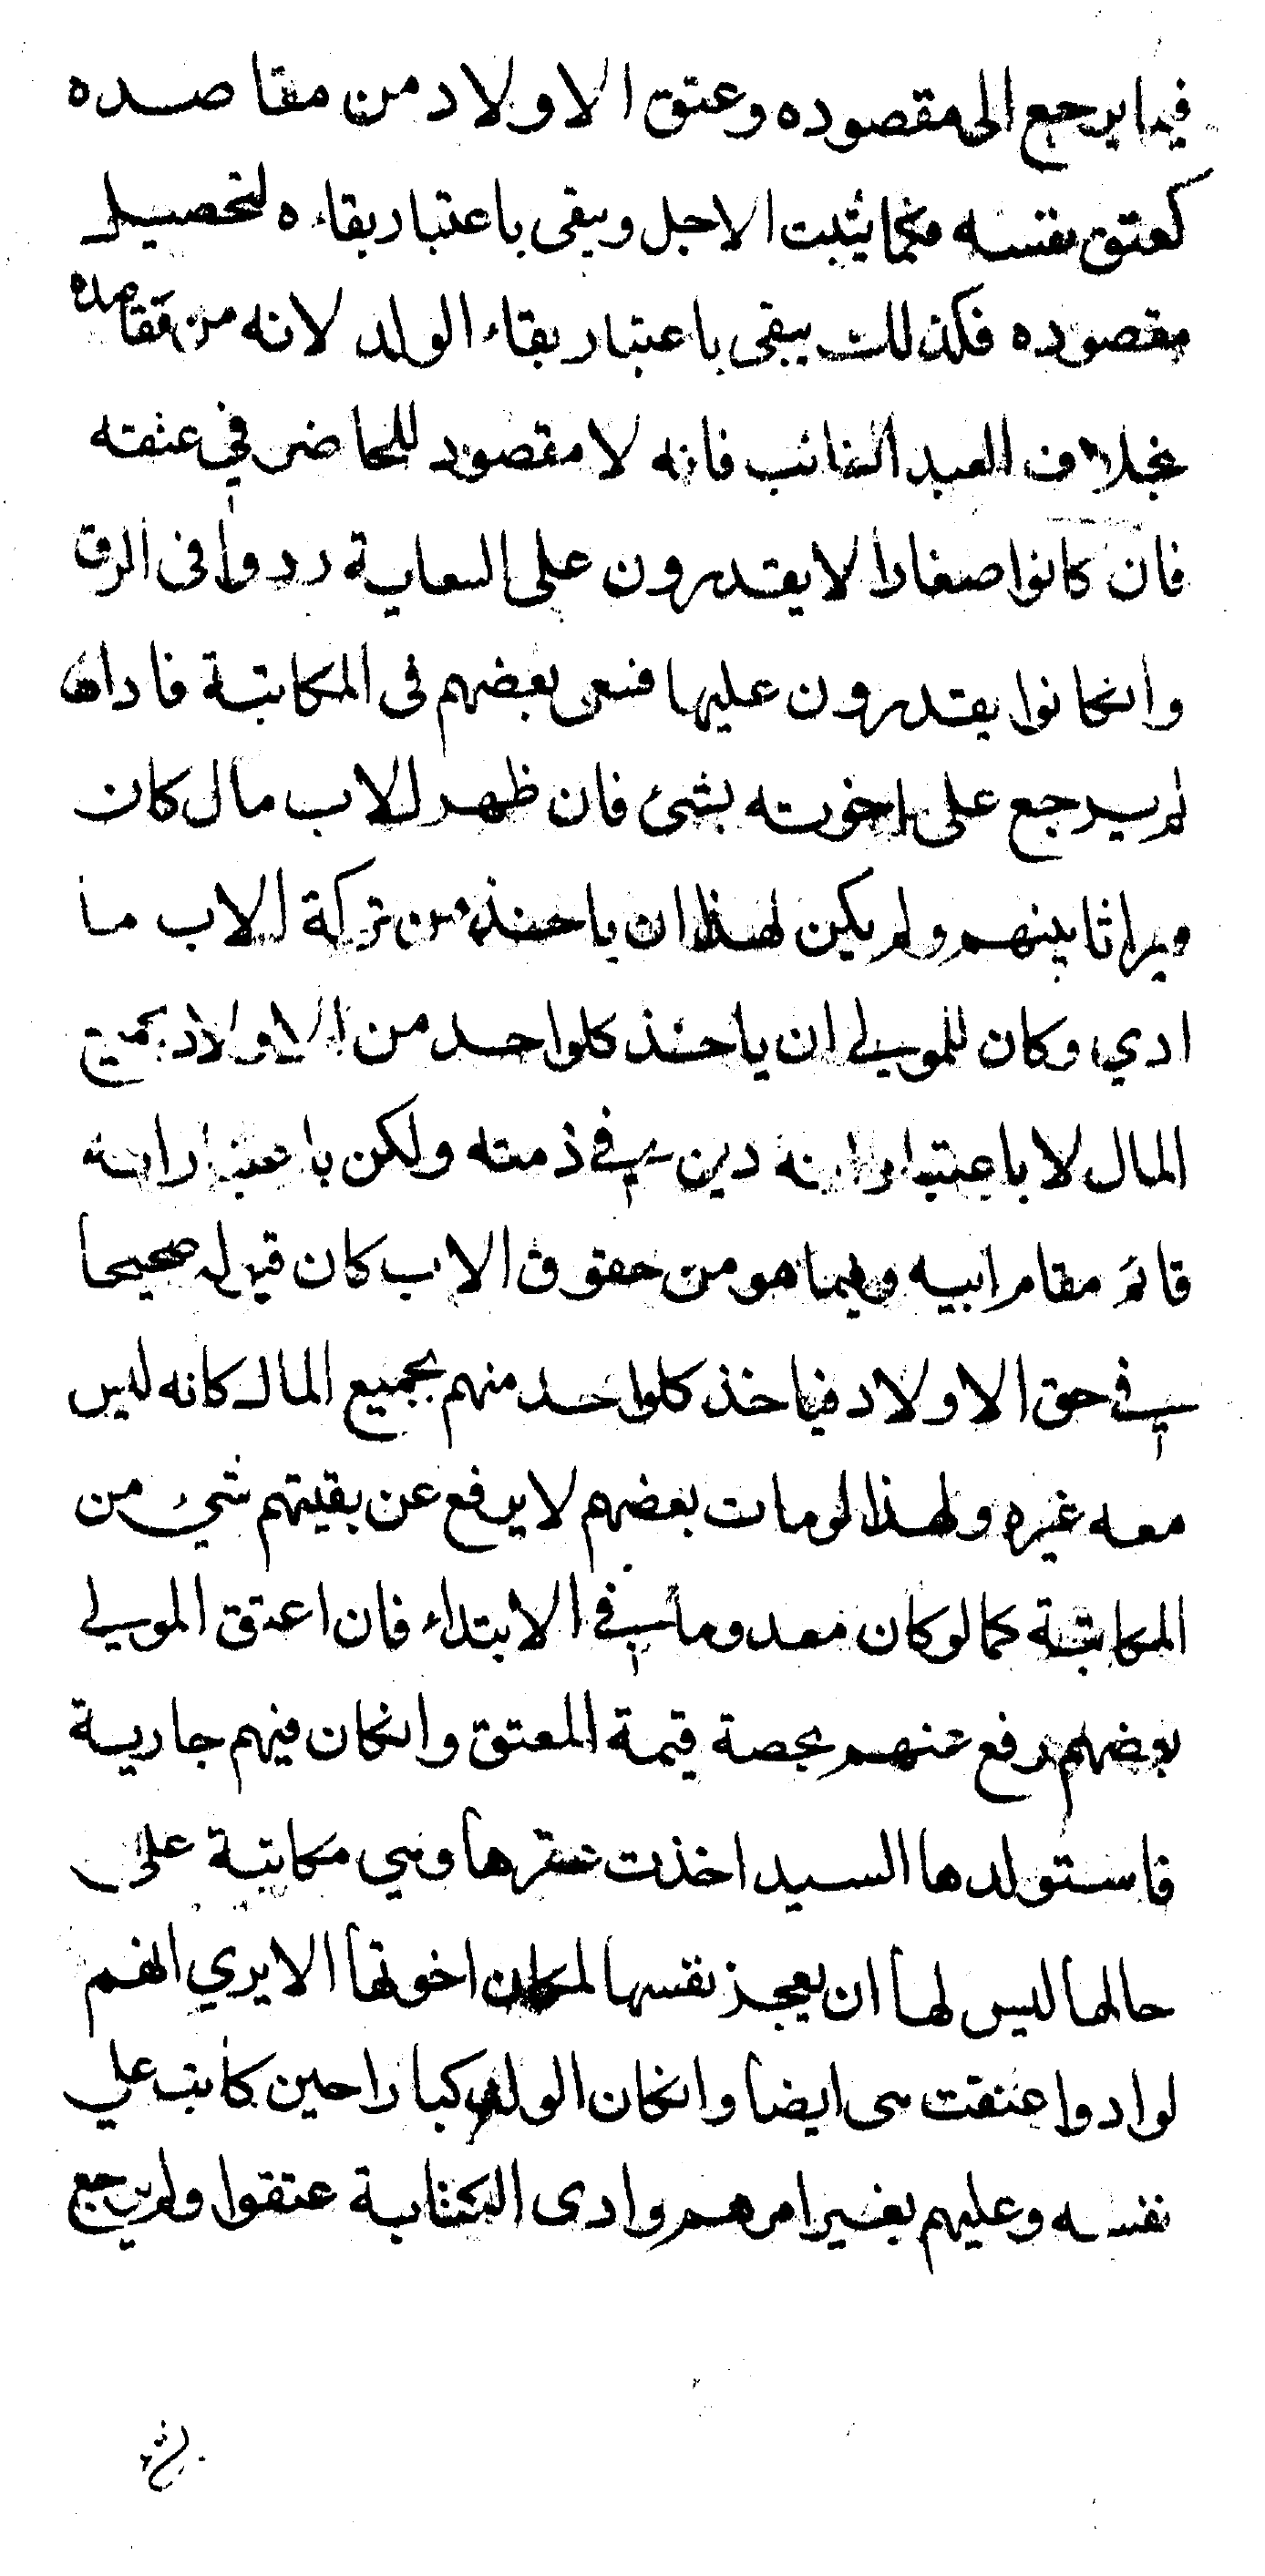 فيما يرجع الى مقصوده وعتق الاولاد من مقاصده
كعتق نفسه فكما يثبت الاجل ويبقى باعتبار بقاءه لتحصيل
مقصوده فكذلك يبقى باعتبار بقاء الولد لانه من مقاصده
بخلاف العبد الغائب فانه لا مقصود للحاضر في عتقه
فان كانوا صغارا لا يقدرون على السعاية ردوا في الرق
وان كانوا يقدرون عليها فسعى بعضهم في المكاتبة فاداها
لم يرجع على اخوته بشئ فان ظهر للاب مال كان
ميراثا بينهم ولم يكن لهذا ان ياخذ من تركة الاب ما
ادي وكان للمولي ان ياخذ كل واحد من الاولاد بجميع
المال لا باعتبار انه دين في ذمته ولكن باعتبار انه
قائم مقام ابيه وفيما هو من حقوق الاب كان قبوله صحيحا
في حق الاولاد فياخذ كل واحد منهم بجميع المال كانه ليس
معه غيره ولهذا لو مات بعضهم لا يرفع عن بقيتهم شيء من
المكاتبة كما لو كان معدوما في الابتداء فان اعتق المولي
بعضهم رفع عنهم بحصة قيمة المعتق وان كان فيهم جارية
فاستولدها السيد اخذت عقرها وهي مكاتبة على
حالها ليس لها ان يعجز نفسها لمكان اخوتها الا يري انهم
لو ادوا عتقت هي ايضا وان كان الولد كبارا حين كاتب علي
نفسه وعليهم بغير امرهم وادى الكتابة عتقوا ولم يرجع